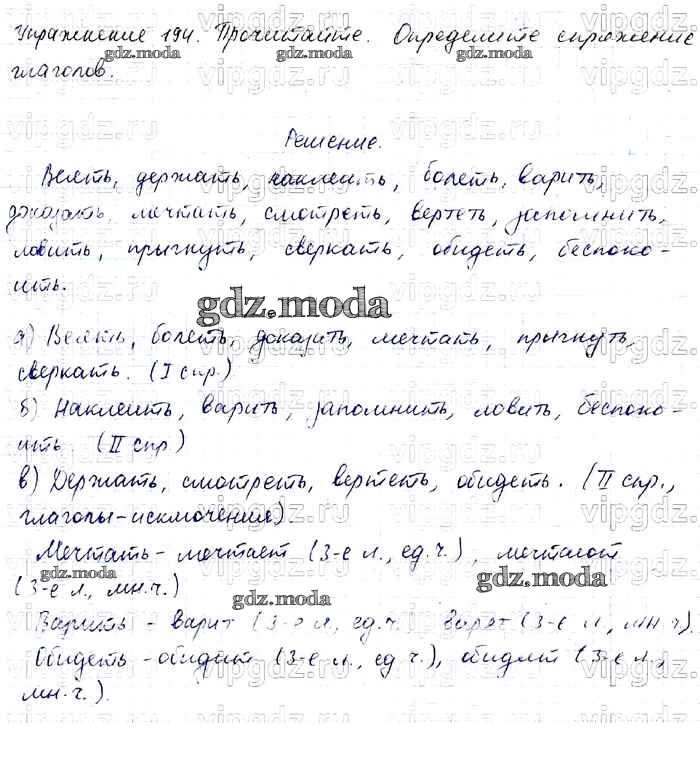 Упражнение 194. Прочитайте. Определите спряжение
глаголов.
Решение.
Веять, держать, наклеить, болеть, варить,
доказать, мечтать, смотреть, вертеть, запомнить,
ловить, прыгнуть, сверкать, обидеть, беспоко-
ить.
gdz.moda
а) Веять, болеть, доказать, мечтать, прыгнуть,
сверкать. (I спр.)
б) Наклеить, варить, запомнить, ловить, беспоко-
ить (II спр)
в) Держать, смотреть, вертеть, обидеть. (II спр.,
глаголы-исключение).
Мечтать - мечтает (3-е л., ед.ч.), мечтают
(3-е л., мн.ч.)
Варить - варит (3-е л., ед.ч. варят (3-е л., мн.ч)
Обидеть - обидит (3-е л., ед ч.), обидят (3-е л.,
мн.ч.).